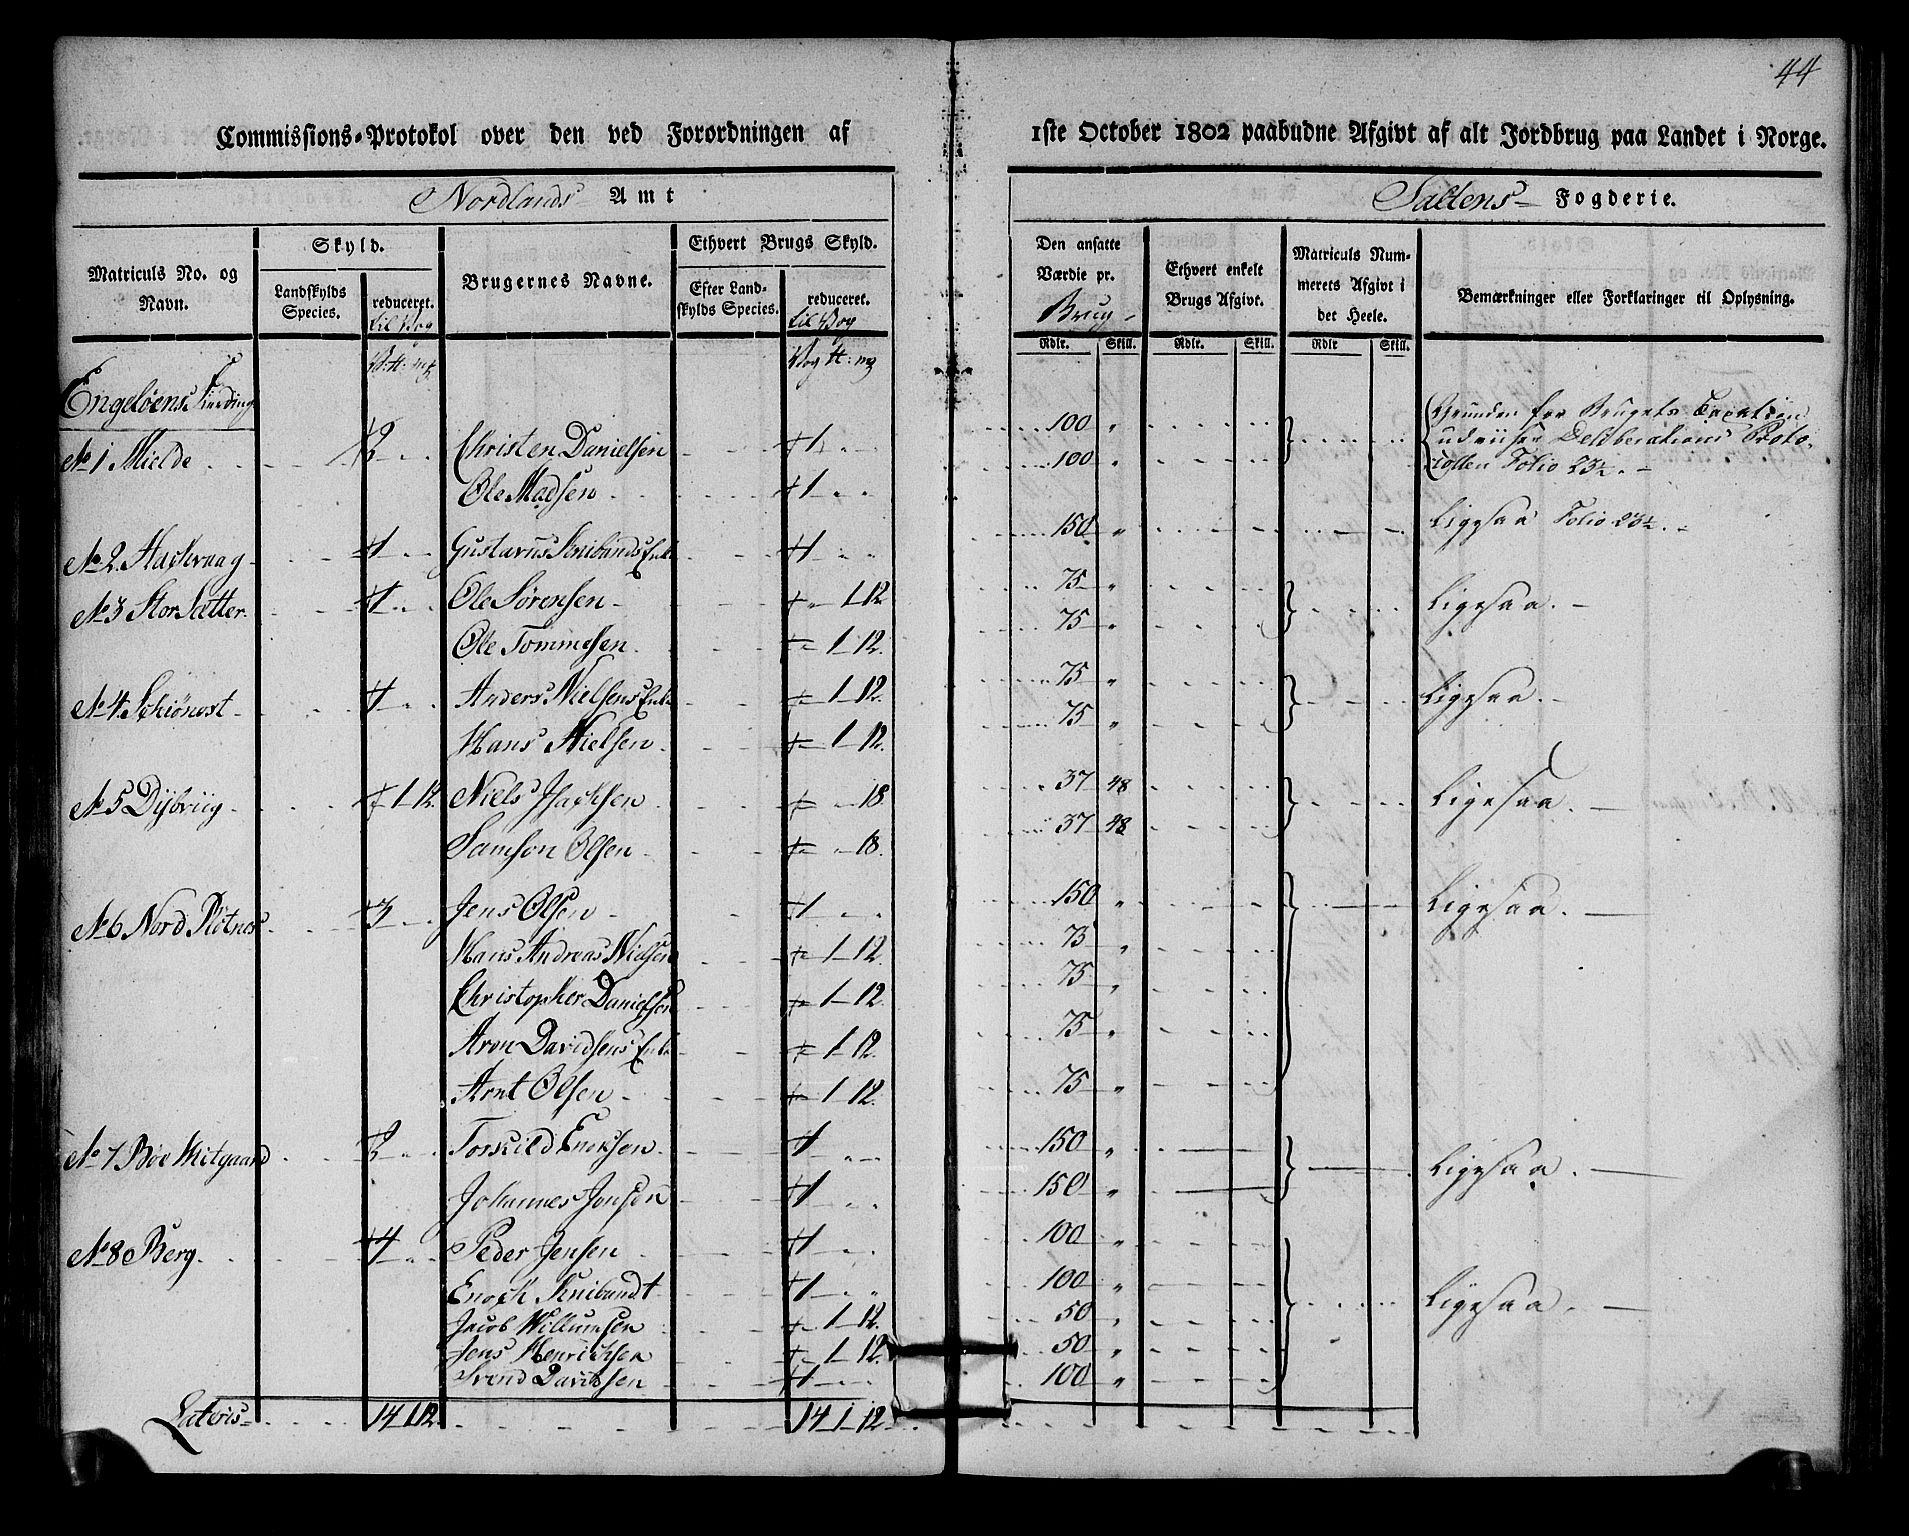 44
Commissions-Protokol over den ved Forordningen af 1ste October 1802 paabudne Afgivt af alt Jordbrug paa Landet i Norge.
Nordlands Amt
Saltens Fogderie.
Matriculs No. og Navn.
Skyld.
Landskylds Species.
reduceret. til Vog
Brugernes Navne.
Ethvert Brugs Skyld.
Efter Landskylds Species.
reduceret. til Vog
Den ansatte Værdie pr. Brug
Ethvert enkelt Brugs Afgivt.
Matriculs Nummerets Afgivt i det Heele.
Bemærkninger eller Forklaringer til Oplysning.
Rdlr. Skill. Rdlr. Skill. Rdlr Skill.
Engelöens Fierding
No 1 Mielde 2 Christen Danielsen 1 100 " Grunden for Brugets Taxation
Ole Madsen 1 100 " udviiser Deliberations Proto-
collen Folio 23½.
No 2. Hackvaag 1 Gustavus Knibunds Enke 1 150 " Ligesaa Folio 23½.
No 3 Stor Sætter 1 Ole Sörensen " 1 12 75 " Ligesaa.
Ole Tommesen 1 12. 75 "
No 4 Schiönost 1 Anders Nielsens Enke 1 12. 75 " Ligesaa.
Hans Nielsen 1 12. 75 "
No 5 Dÿbviig 1 12. Niels Isachsen 18. 37 48 Ligesaa.
Samson Olsen 18. 37 48
No 6 Nord Fløtnes 3 Jens Olsen 1 150 " Ligesaa.
Hans Andreas Nielsen 1 12. 75 "
Christopher Danielsen 1 12. 75 "
Aron Davidsens Enke 1 12. 75 "
Arnt Olsen 1 12. 75 "
No 7 Böe Mitgaard 2 Torkild Enoksen 1 150 " Ligesaa.
Johannes Jonsen 1 150 "
No 8 Berg 4 Peder Jensen 1 100 " Ligesaa.
Enoch Knibundt 1 100 "
Jacob Willumsen 1 12. 50 "
Jens Henrichsen 1 12. 50 "
Svend Davidsen 1 100 "
Lateris 14 1 12. 14 1 12